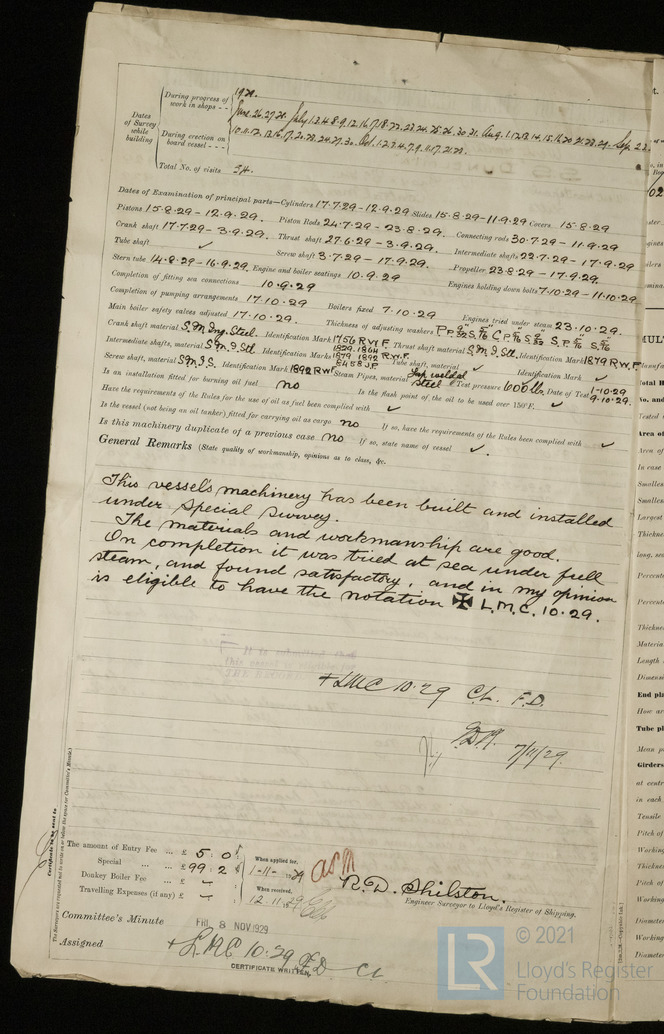 1929.
During progress of work in shops - -
June. 26. 27. 28. July 1. 3. 4. 8. 9. 12. 16. 17. 18. 22. 23. 24. 25. 26. 30. 31. Aug. 1. 12. 13. 14. 15. 16. 20. 21. 23. 29. Sep. 2. 3.
Dates of Survey while building
During erection on board vessel - - -
10. 11. 12. 13. 16. 17. 24. 27. 30. Oct. 1. 2. 3. 4. 7. 9. 11. 17. 21. 23.
Total No. of visits 54.
Dates of Examination of principal parts—Cylinders 17.7.29 - 12.9.29 Slides 15.8.29 - 11.9.29 Covers 15.8.29
Pistons 15.8.29 - 12.9.29. Piston Rods 24.7.29 - 23.8.29. Connecting rods 30.7.29 - 11.9.29
Crank shaft 17.7.29 - 3.9.29. Thrust shaft 27.6.29 - 3.9.29. Intermediate shafts 22.7.29 - 17.9.29
Tube shaft ✓ Screw shaft 3.7.29 - 17.9.29. Propeller 23.8.29 - 17.9.29.
Stern tube 14.8.29 - 16.9.29. Engine and boiler seatings 10.9.29 Engines holding down bolts 7.10.29 - 11.10.29.
Completion of fitting sea connections 10.9.29
Completion of pumping arrangements 17.10.29 Boilers fixed 7.10.29 Engines tried under steam 23.10.29.
Main boiler safety valves adjusted 17.10.29. Thickness of adjusting washers
Crank shaft material S.M. Ing. Steel. Identification Mark 1756 R.W.F. Thrust shaft material S.M.I. Stl. Identification Mark 1879 R.W.F.
Intermediate shafts, material S.M.I. Stl. Identification Marks 1829 1864 1879 1892 R.W.F. Tube shaft, material ✓ Identification Mark ✓
Screw shaft, material S.M.I.S. Identification Mark 1892 R.W.F. 6458 J.P. Steam Pipes, material Lap welded Steel Test pressure 600 lb. Date of Test 1-10-29 9.10.29.
Is an installation fitted for burning oil fuel no Is the flash point of the oil to be used over 150°F. ✓
Have the requirements of the Rules for the use of oil as fuel been complied with ✓
Is the vessel (not being an oil tanker) fitted for carrying oil as cargo no If so, have the requirements of the Rules been complied with ✓
Is this machinery duplicate of a previous case no If so, state name of vessel ✓.
General Remarks (State quality of workmanship, opinions as to class, &c.
This vessels machinery has been built and installed
under special survey.
The materials and workmanship are good.
On completion it was tried at sea under full
steam, and found satisfactory, and in my opinion
is eligible to have the notation ✠ L.M.C. 10.29.
It is submitted that
this vessel is eligible for
THE RECORD
+ LMC 10.29 C.L. F.D.
7/11/29.
Certificate to be sent to
(The Surveyors are requested not to write on or below the space for Committee's Minute.)
The amount of Entry Fee ... £ 5 : 0 :
Special ... ... £ 99 : 2 :
Donkey Boiler Fee ... £ — :
Travelling Expenses (if any) £ — :
When applied for,
1-11-1929
When received,
12.11.1929
R. D. Shilston.
Engineer Surveyor to Lloyd's Register of Shipping.
Committee's Minute FRI. 8 NOV 1929
Assigned + LMC 10.29 F.D. CL
CERTIFICATE WRITTEN.
LR
© 2021
Lloyd's Register
Foundation